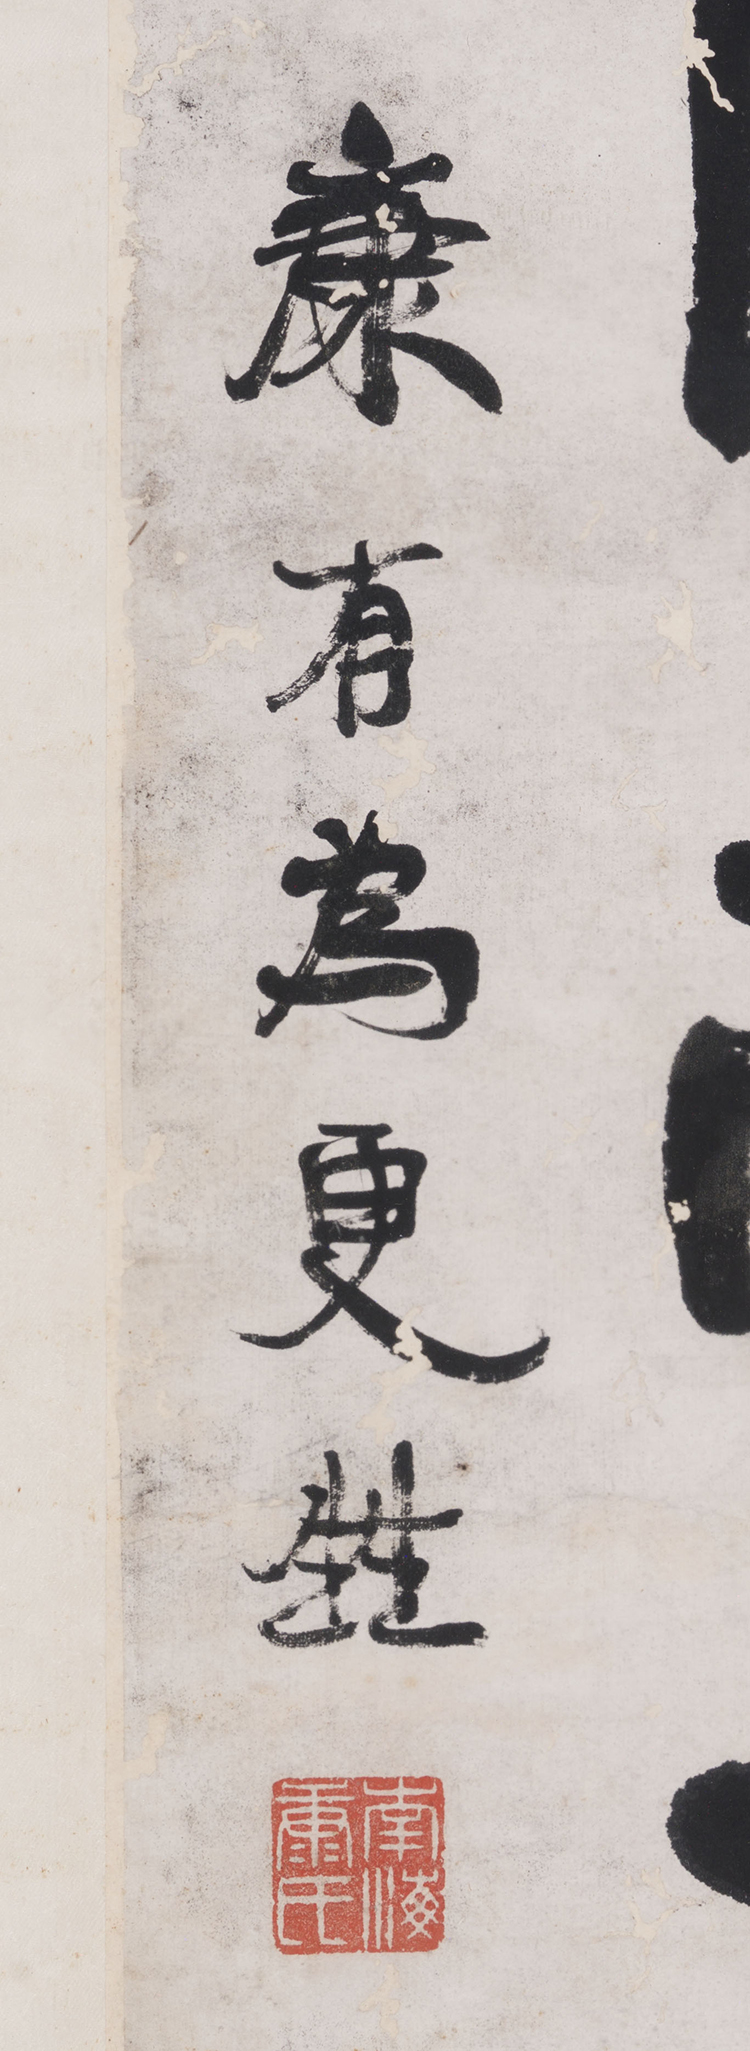 康有為更甡
南海
康氏